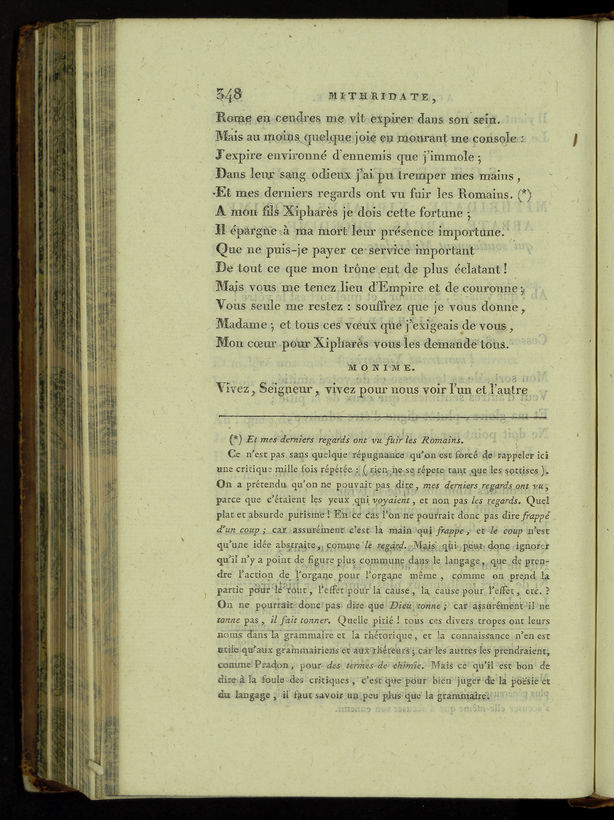 348 MITHRIDATE,
Rome en cendres me vit expirer dans son sein.
Mais au moins quelque joie en mourant me console :
J'expire environné d'ennemis que j'immole ;
Dans leur sang odieux j'ai pu tremper mes mains,
Et mes derniers regards ont vu fuir les Romains. (*)
A mon fils Xipharès je dois cette fortune ;
Il épargne à ma mort leur présence importune.
Que ne puis-je payer ce service important
De tout ce que mon trône eut de plus éclatant !
Mais vous me tenez lieu d'Empire et de couronne ;
Vous seule me restez : souffrez que je vous donne,
Madame ; et tous ces vœux que j'exigeais de vous,
Mon cœur pour Xipharès vous les demande tous.
MONIME.
Vivez, Seigneur, vivez pour nous voir l'un et l'autre
(*) Et mes derniers regards ont vu fuir les Romains.
Ce n'est pas sans quelque répugnance qu'on est forcé de rappeler ici
une critique mille fois répétée : ( rien ne se répete tant que les sottises ).
On a prétendu qu'on ne pouvait pas dire, mes derniers regards ont vu,
parce que c'étaient les yeux qui voyaient, et non pas les regards. Quel
plat et absurde purisme ! En ce cas l'on ne pourrait donc pas dire frappé
d'un coup ; car assurément c'est la main qui frappe, et le coup n'est
qu'une idée abstraite, comme le regard. Mais qui peut donc ignorer
qu'il n'y a point de figure plus commune dans le langage, que de pren-
dre l'action de l'organe pour l'organe même, comme on prend la
partie pour le tout, l'effet pour la cause, la cause pour l'effet, etc. ?
On ne pourrait donc pas dire que Dieu tonne ; car assurément il ne
tonne pas, il fait tonner. Quelle pitié ! tous ces divers tropes ont leurs
noms dans la grammaire et la rhétorique, et la connaissance n'en est
utile qu'aux grammairiens et aux rhéteurs ; car les autres les prendraient,
comme Pradon, pour des termes de chimie. Mais ce qu'il est bon de
dire à la foule des critiques, c'est que pour bien juger de la poésie et
du langage, il faut savoir un peu plus que la grammaire.